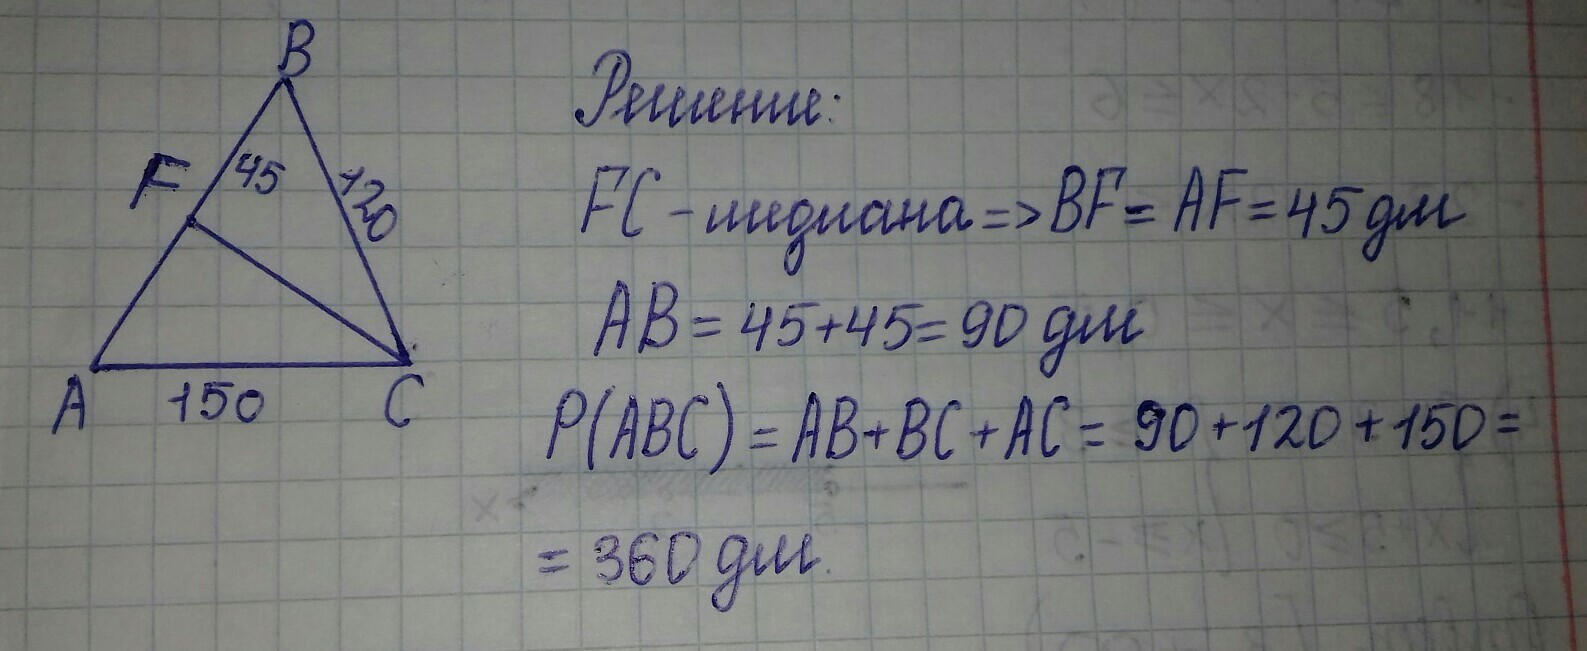 B
F 45 120
A 150 C
Решение:
FC - медиана => BF = AF = 45 дм
AB = 45+45 = 90 дм
P(ABC) = AB + BC + AC = 90 + 120 + 150 =
= 360 дм.